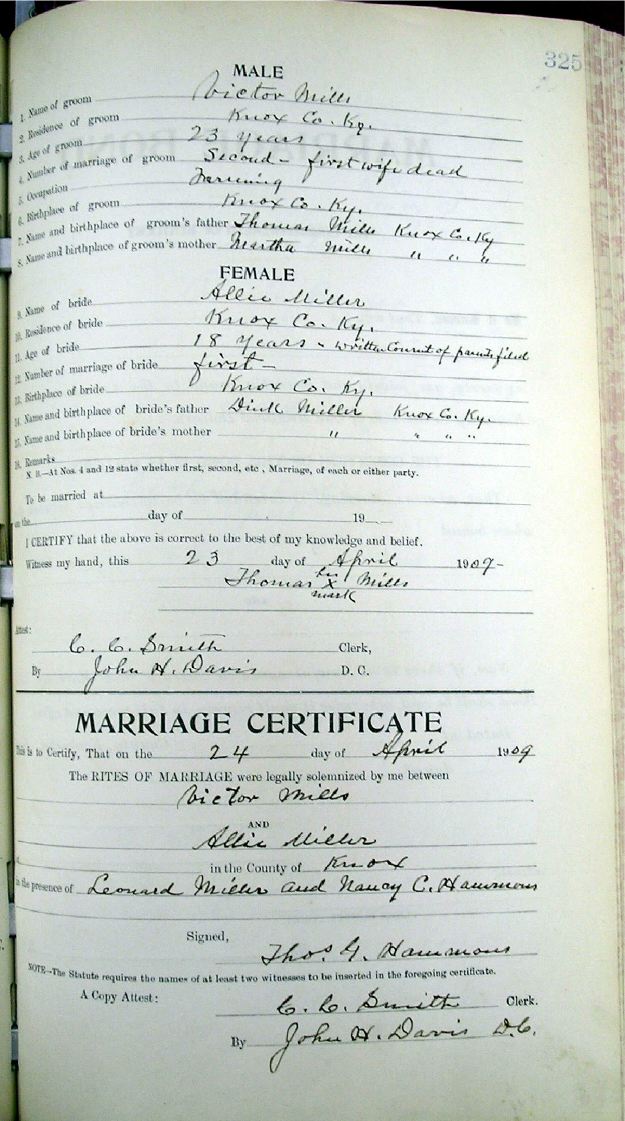 325
MALE
1. Name of groom Victor Mills
2. Residence of groom Knox Co. Ky.
3. Age of groom 23 years
4. Number of marriage of groom Second - first wife dead
5. Occupation Farming
6. Birthplace of groom Knox Co. Ky.
7. Name and birthplace of groom's father Thomas Mills Knox Co. Ky
8. Name and birthplace of groom's mother Martha Mills " " "
FEMALE
9. Name of bride Allie Miller
10. Residence of bride Knox Co. Ky.
11. Age of bride 18 years - written Consent of parents filed
12. Number of marriage of bride first -
13. Birthplace of bride Knox Co. Ky.
14. Name and birthplace of bride's father Dink Miller Knox Co. Ky.
15. Name and birthplace of bride's mother " " " "
16. Remarks
N. B.—At Nos. 4 and 12 state whether first, second, etc., Marriage, of each or either party.
To be married at
on the day of 19
I CERTIFY that the above is correct to the best of my knowledge and belief.
Witness my hand, this 23 day of April 1909-
Thomas his x mark Mills
Attest:
C. C. Smith Clerk,
By John H. Davis D. C.
MARRIAGE CERTIFICATE
This is to Certify, That on the 24 day of April 1909
The RITES OF MARRIAGE were legally solemnized by me between
Victor Mills
AND
Allie Miller
in the County of Knox
in the presence of Leonard Miller and Nancy C. Hammons
Signed,
Thos. G. Hammons
NOTE—The Statute requires the names of at least two witnesses to be inserted in the foregoing certificate.
A Copy Attest:
C. C. Smith Clerk.
By John H. Davis D.C.